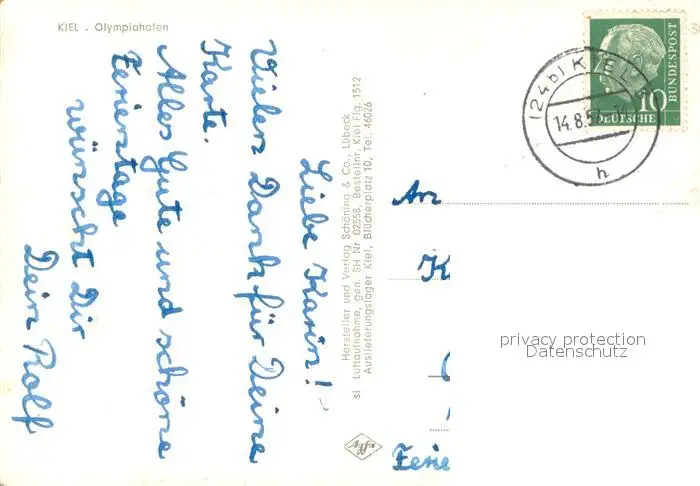 KIEL - Olympiahafen
Liebe Karin!
Vielen Dank für Deine
Karte.
Alles Gute und schöne
Ferientage
wünscht Dir
Dein Rolf
Hersteller und Verlag Schöning & Co., Lübeck
si Luftaufnahme, gen. SH Nr. 02558, Bestellnr. Kiel Flg. 1512
Auslieferungslager Kiel, Blücherplatz 10, Tel. 46026
Agfa
(24b) KIEL
14.8.5
h
10
DEUTSCHE
BUNDESPOST
An
K
Ferie
privacy protection
Datenschutz